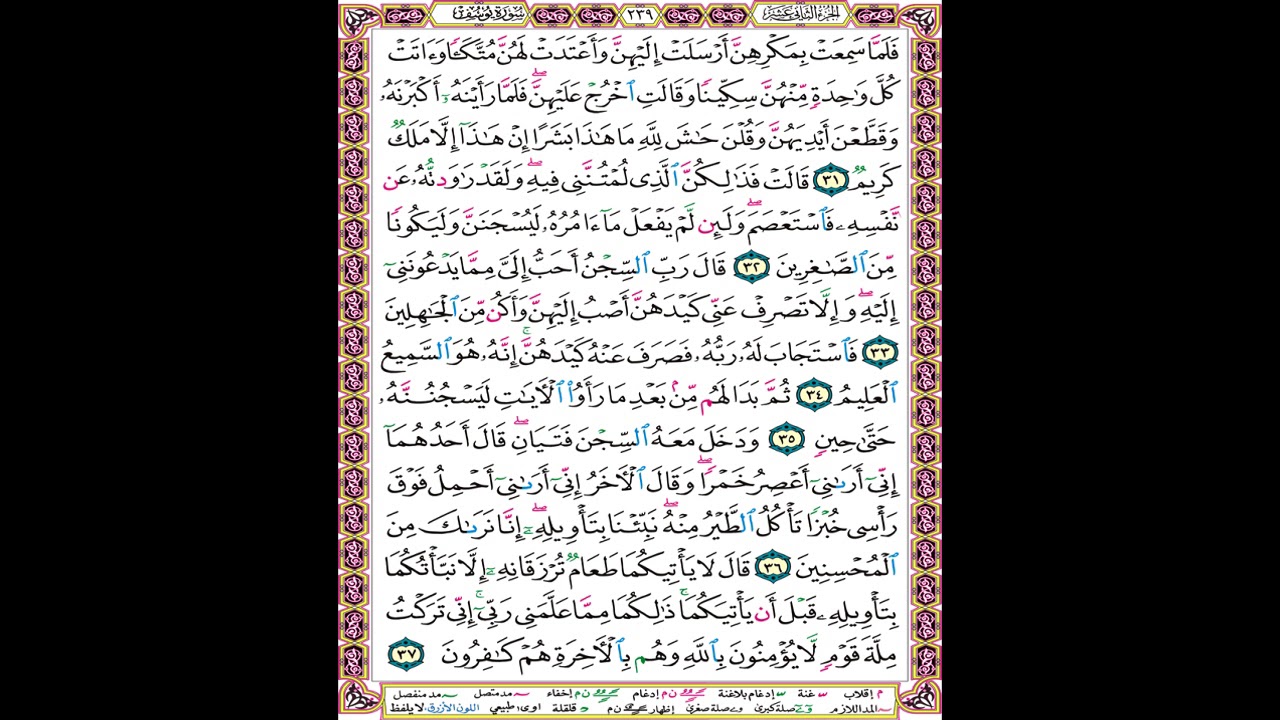 الجزء الثاني عشر
٢٣٩
سورة يوسف
فَلَمَّا سَمِعَتْ بِمَكْرِهِنَّ أَرْسَلَتْ إِلَيْهِنَّ وَأَعْتَدَتْ لَهُنَّ مُتَّكَـًٔا وَءَاتَتْ
كُلَّ وَٰحِدَةٍ مِّنْهُنَّ سِكِّينًا وَقَالَتِ ٱخْرُجْ عَلَيْهِنَّ ۖ فَلَمَّا رَأَيْنَهُۥٓ أَكْبَرْنَهُۥ
وَقَطَّعْنَ أَيْدِيَهُنَّ وَقُلْنَ حَٰشَ لِلَّهِ مَا هَٰذَا بَشَرًا إِنْ هَٰذَآ إِلَّا مَلَكٌ
كَرِيمٌ ٣١ قَالَتْ فَذَٰلِكُنَّ ٱلَّذِى لُمْتُنَّنِى فِيهِ ۖ وَلَقَدْ رَٰوَدتُّهُۥ عَن
نَّفْسِهِۦ فَٱسْتَعْصَمَ ۖ وَلَئِن لَّمْ يَفْعَلْ مَآ ءَامُرُهُۥ لَيُسْجَنَنَّ وَلَيَكُونًا
مِّنَ ٱلصَّٰغِرِينَ ٣٢ قَالَ رَبِّ ٱلسِّجْنُ أَحَبُّ إِلَىَّ مِمَّا يَدْعُونَنِىٓ
إِلَيْهِ ۖ وَإِلَّا تَصْرِفْ عَنِّى كَيْدَهُنَّ أَصْبُ إِلَيْهِنَّ وَأَكُن مِّنَ ٱلْجَٰهِلِينَ
٣٣ فَٱسْتَجَابَ لَهُۥ رَبُّهُۥ فَصَرَفَ عَنْهُ كَيْدَهُنَّ ۚ إِنَّهُۥ هُوَ ٱلسَّمِيعُ
ٱلْعَلِيمُ ٣٤ ثُمَّ بَدَا لَهُم مِّنۢ بَعْدِ مَا رَأَوُا۟ ٱلْءَايَٰتِ لَيَسْجُنُنَّهُۥ
حَتَّىٰ حِينٍ ٣٥ وَدَخَلَ مَعَهُ ٱلسِّجْنَ فَتَيَانِ ۖ قَالَ أَحَدُهُمَآ
إِنِّىٓ أَرَىٰنِىٓ أَعْصِرُ خَمْرًا ۖ وَقَالَ ٱلْءَاخَرُ إِنِّىٓ أَرَىٰنِىٓ أَحْمِلُ فَوْقَ
رَأْسِى خُبْزًا تَأْكُلُ ٱلطَّيْرُ مِنْهُ ۖ نَبِّئْنَا بِتَأْوِيلِهِۦٓ ۖ إِنَّا نَرَىٰكَ مِنَ
ٱلْمُحْسِنِينَ ٣٦ قَالَ لَا يَأْتِيكُمَا طَعَامٌ تُرْزَقَانِهِۦٓ إِلَّا نَبَّأْتُكُمَا
بِتَأْوِيلِهِۦ قَبْلَ أَن يَأْتِيَكُمَا ۚ ذَٰلِكُمَا مِمَّا عَلَّمَنِى رَبِّىٓ ۚ إِنِّى تَرَكْتُ
مِلَّةَ قَوْمٍ لَّا يُؤْمِنُونَ بِٱللَّهِ وَهُم بِٱلْءَاخِرَةِ هُمْ كَٰفِرُونَ ٣٧
م إقلاب غنة إدغام بلاغنة ن م إدغام ن م إخفاء مد متصل مد منفصل
المد اللازم صلة كبرى صلة صغرى إظهار ن م قلقلة اوى طبيعي اللون الأزرق لا يلفظ